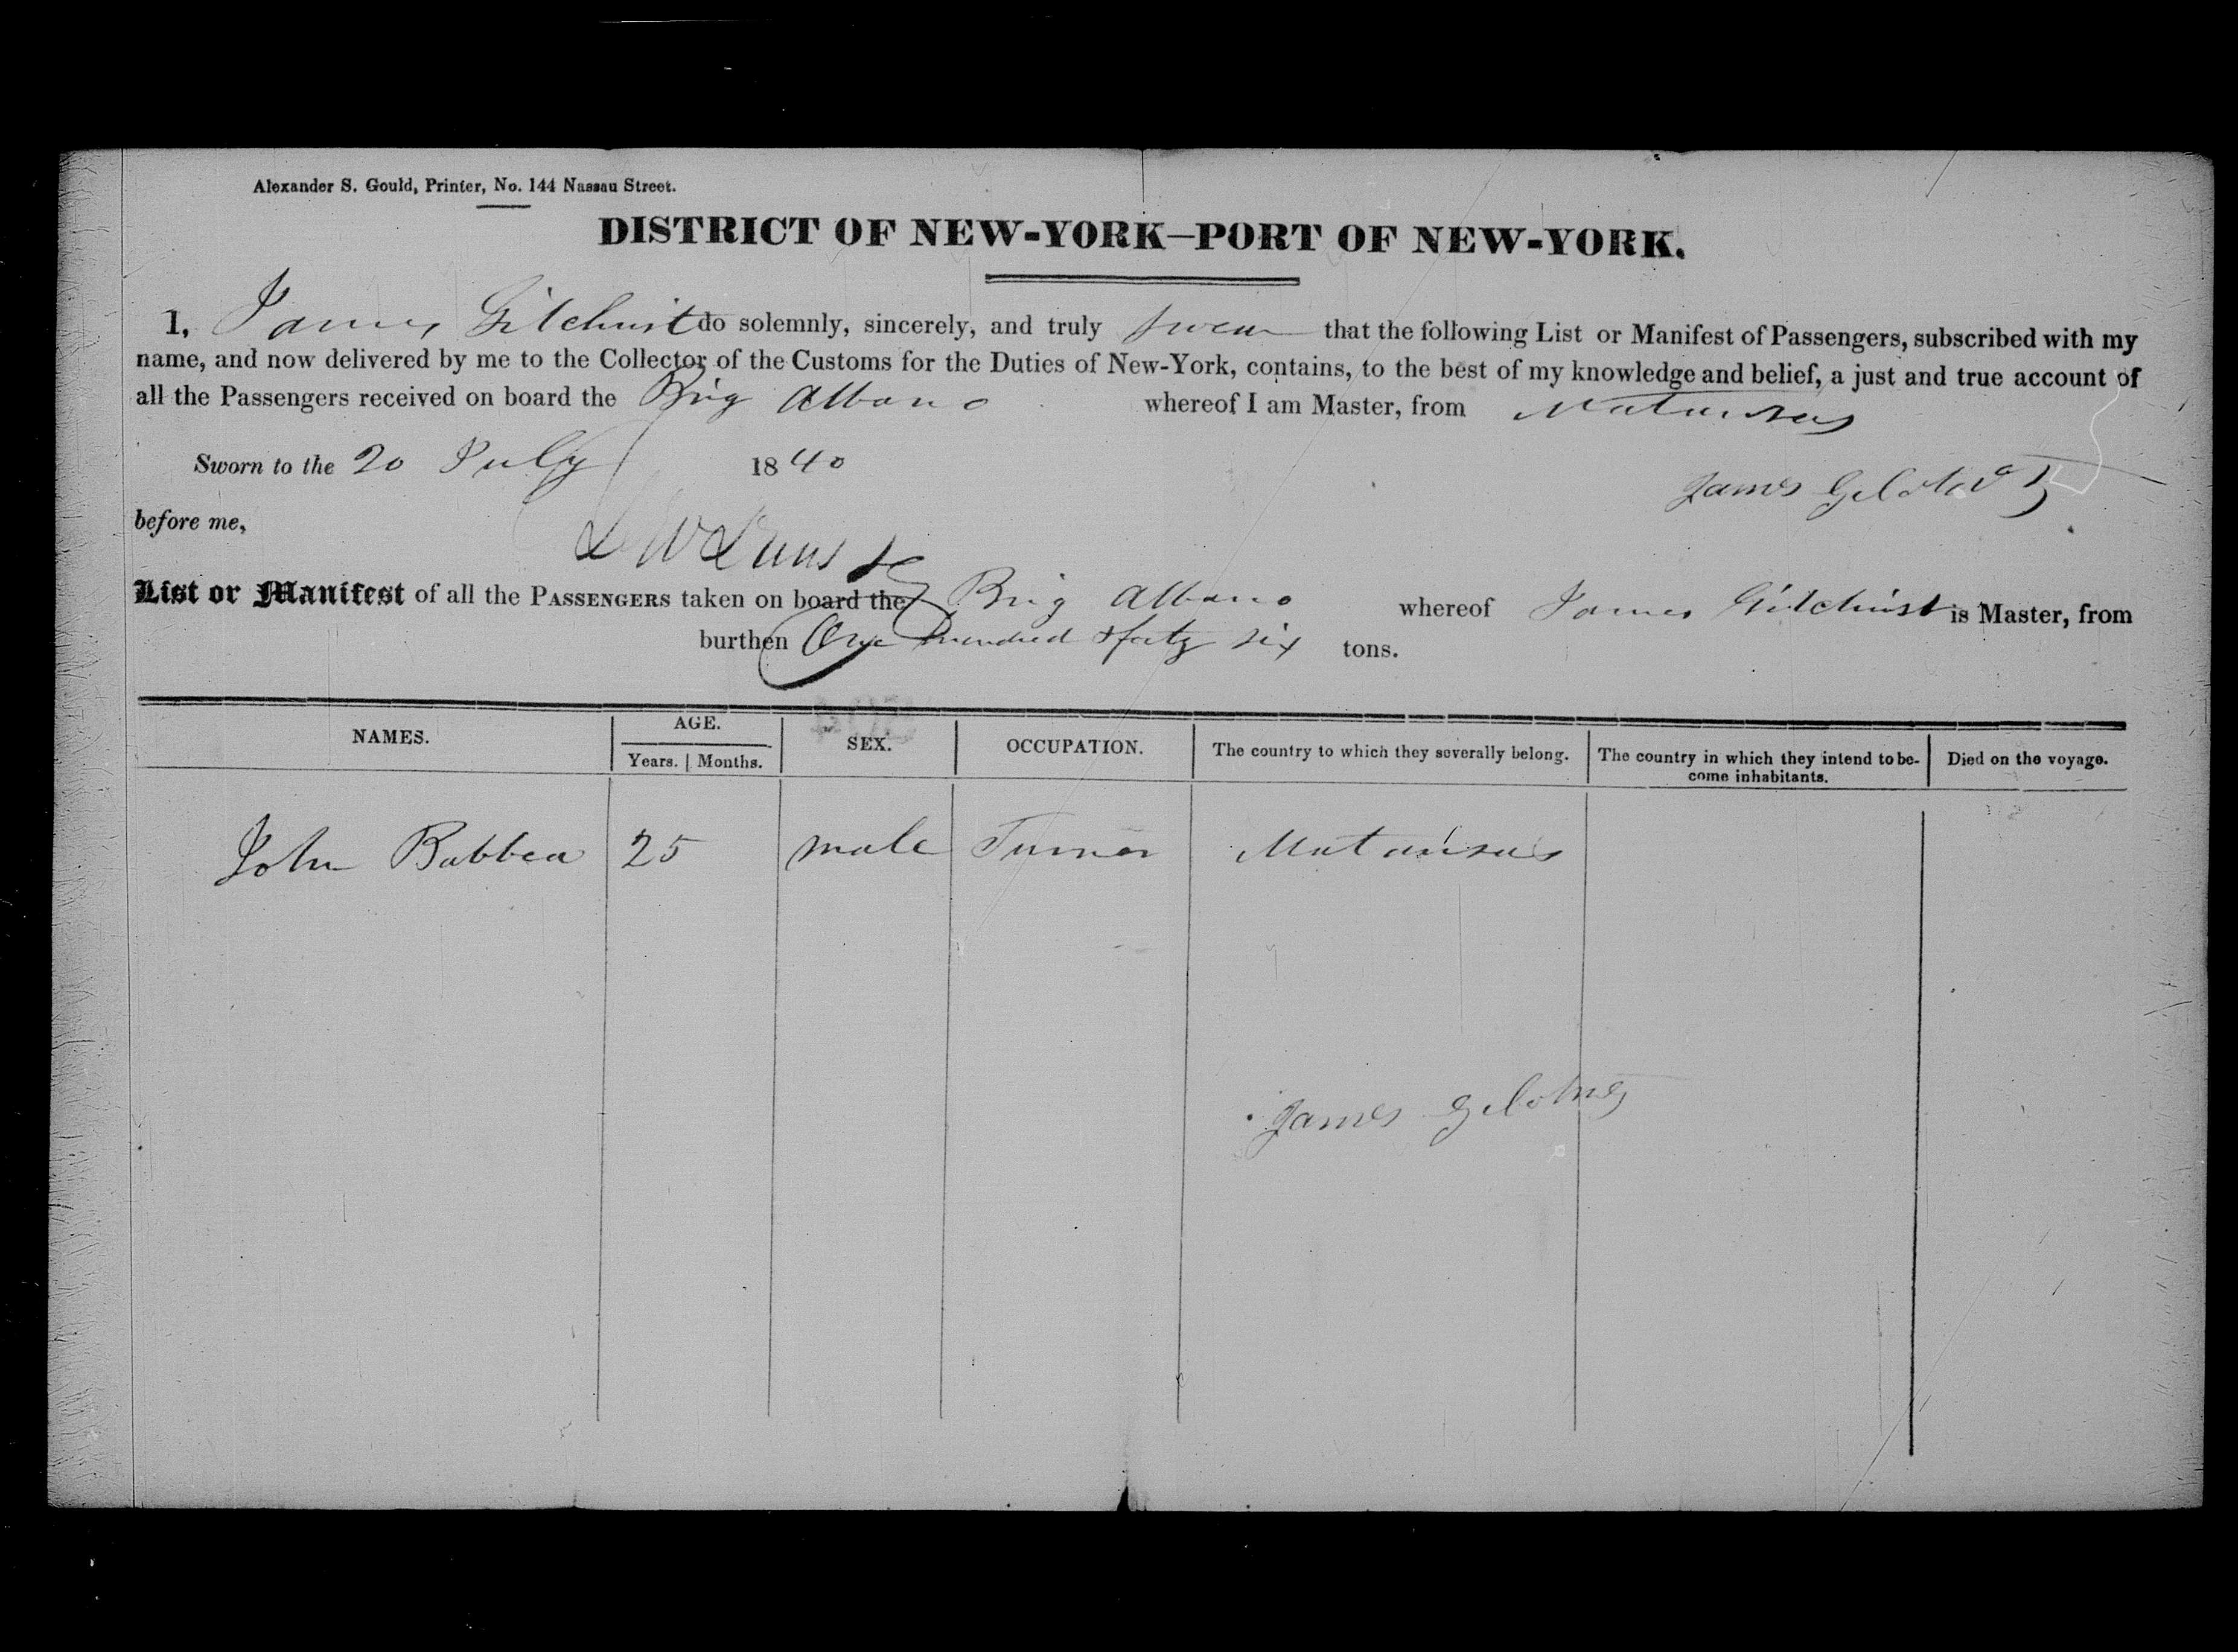 Alexander S. Gould, Printer, No. 144 Nassau Street.
DISTRICT OF NEW-YORK—PORT OF NEW-YORK.
I, James Gilchrist do solemnly, sincerely, and truly swear that the following List or Manifest of Passengers, subscribed with my
name, and now delivered by me to the Collector of the Customs for the Duties of New-York, contains, to the best of my knowledge and belief, a just and true account of
all the Passengers received on board the Brig Albano whereof I am Master, from Matansas
Sworn to the 20 July 1840
James
before me,
List or Manifest of all the PASSENGERS taken on board the Brig Albano whereof James Gilchrist is Master, from
burthen One hundred & forty six tons.
NAMES. AGE. SEX. OCCUPATION. The country to which they severally belong. The country in which they intend to be- Died on the voyage.
Years. Months. come inhabitants.
John Babbea 25 male Turner Matansas
James